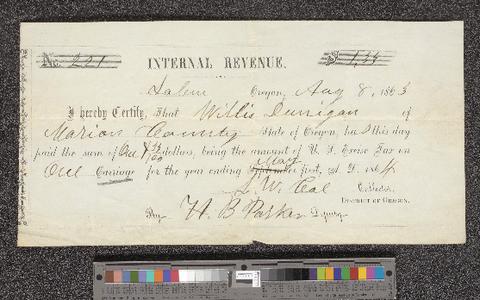 No. 221 INTERNAL REVENUE. $1.33
Salem Oregon, Aug 8, 1863
I hereby Certify, That Willis Dunigan of
Marion County State of Oregon, has this day
paid the sum of One & 33/100 dollars, being the amount of U. S. Excise Tax on
May
One Carriage for the year ending September first, A. D. 1864
L. W. Coe Collector,
DISTRICT OF OREGON.
By H. B. Parker Deputy.